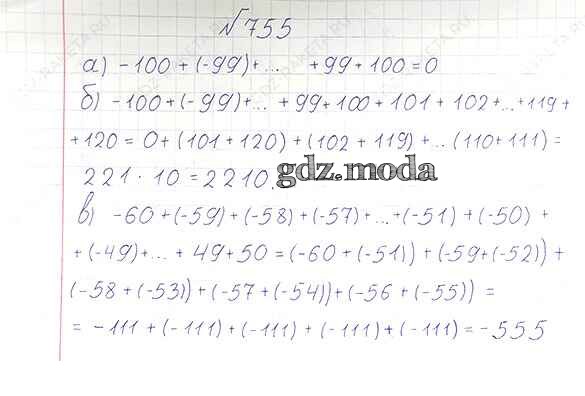 №755
а) -100 + (-99) + ... + 99 + 100 = 0
б) -100 + (-99) + ... + 99 + 100 + 101 + 102 + ... + 119 +
+ 120 = 0 + (101 + 120) + (102 + 119) + ... (110 + 111) =
221 · 10 = 2210 gdz.moda
в) -60 + (-59) + (-58) + (-57) + ... + (-51) + (-50) +
+ (-49) + ... + 49 + 50 = (-60 + (-51)) + (-59 + (-52)) +
(-58 + (-53)) + (-57 + (-54)) + (-56 + (-55)) =
= -111 + (-111) + (-111) + (-111) + (-111) = -555